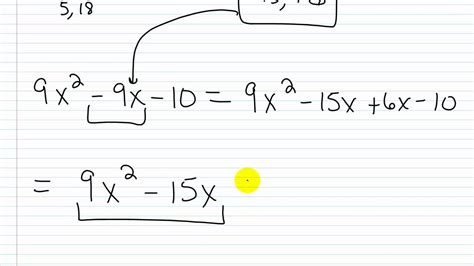 5, 18
9x² - 9x - 10 = 9x² - 15x + 6x - 10
= 9x² - 15x